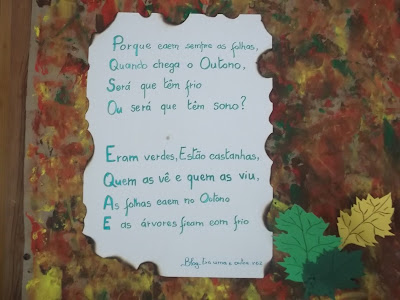 Porque caem sempre as folhas,
Quando chega o Outono,
Será que têm frio
Ou será que têm sono?
Eram verdes, Estão castanhas,
Quem as vê e quem as viu,
As folhas caem no Outono
E as árvores ficam com frio
Blog era uma e outra vez